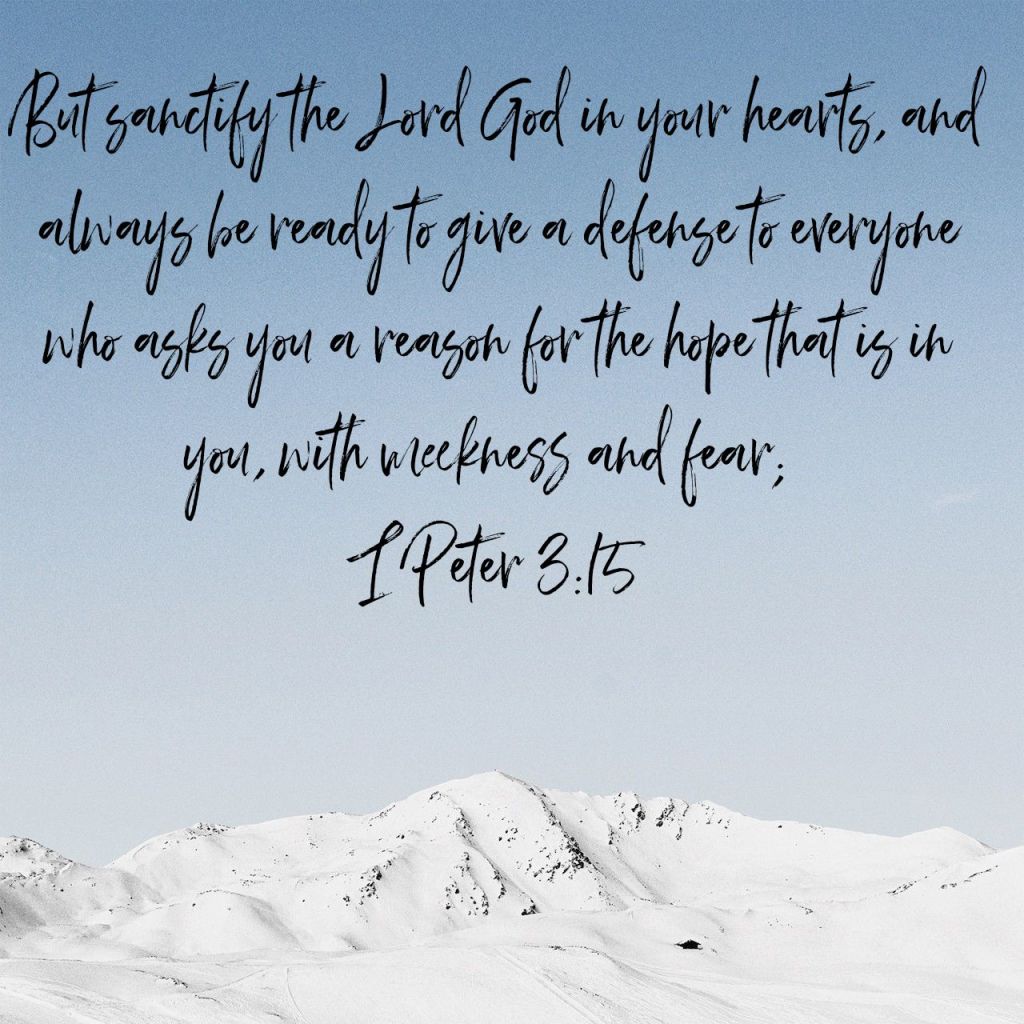 But sanctify the Lord God in your hearts, and
always be ready to give a defense to everyone
who asks you a reason for the hope that is in
you, with meekness and fear;
I Peter 3:15